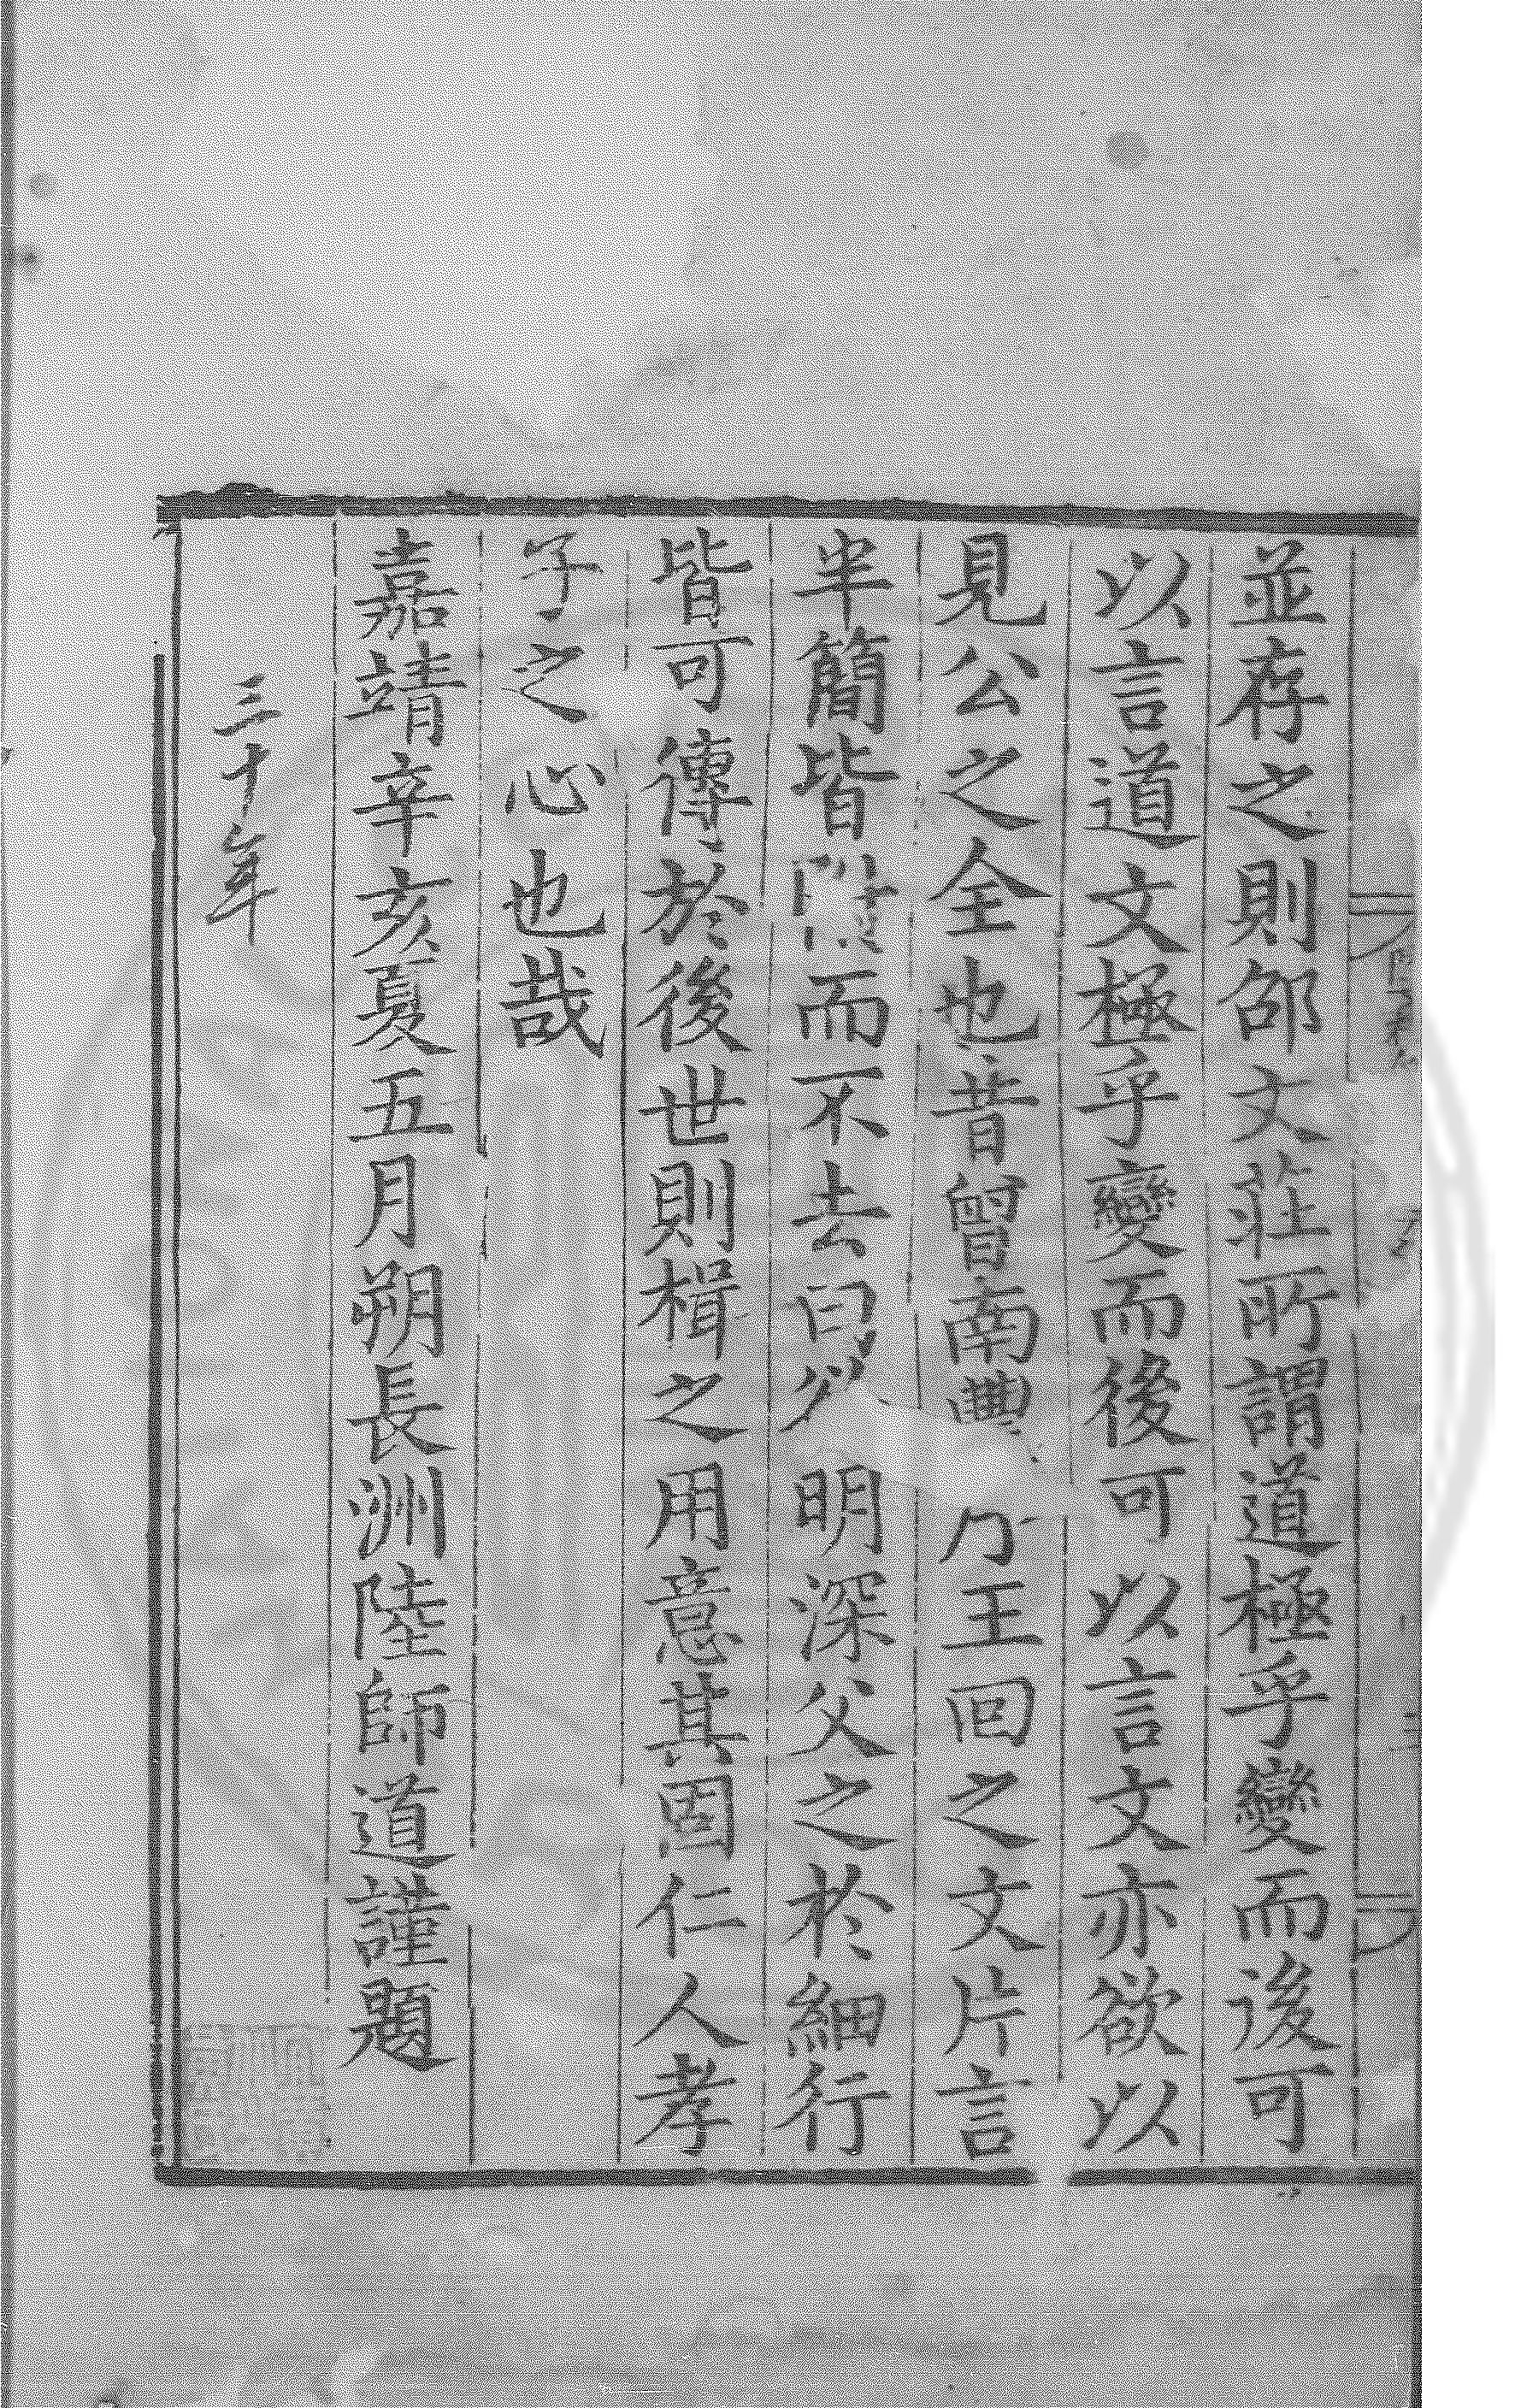 並存之則邵文莊所謂道極乎變而後可
以言道文極乎變而後可以言文亦欲以
見公之全也昔曾南豐王回之文片言
半簡皆而不去曰明深父之於細行
皆可傳於後世則楫之用意其固仁人孝
子之心也哉
嘉靖辛亥夏五月朔長洲陸師道謹題
三十年